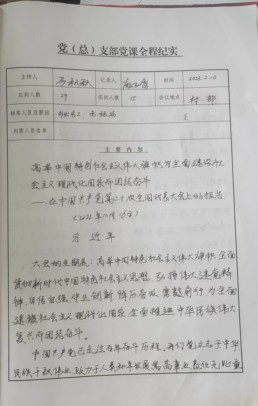 党（总）支部党课全程纪实
主持人 记录人 时间
应到人数 实到人数 会议地点 村部
缺席人员及原因
列席人员名单
主 要 内 容
高举中国特色社会主义伟大旗帜 为全面建设社
会主义现代化国家而团结奋斗
——在中国共产党第二十次全国代表大会上的报告
（2022年10月16日）
习 近 平
大会的主题是：高举中国特色社会主义伟大旗帜，全面
贯彻新时代中国特色社会主义思想，弘扬伟大建党精
神，自信自强、守正创新，踔厉奋发、勇毅前行，为全面
建设社会主义现代化国家、全面推进中华民族伟大
复兴而团结奋斗。
中国共产党已走过百年奋斗历程。我们党立志于中华
民族千秋伟业，致力于人类和平与发展崇高事业，责任无比重